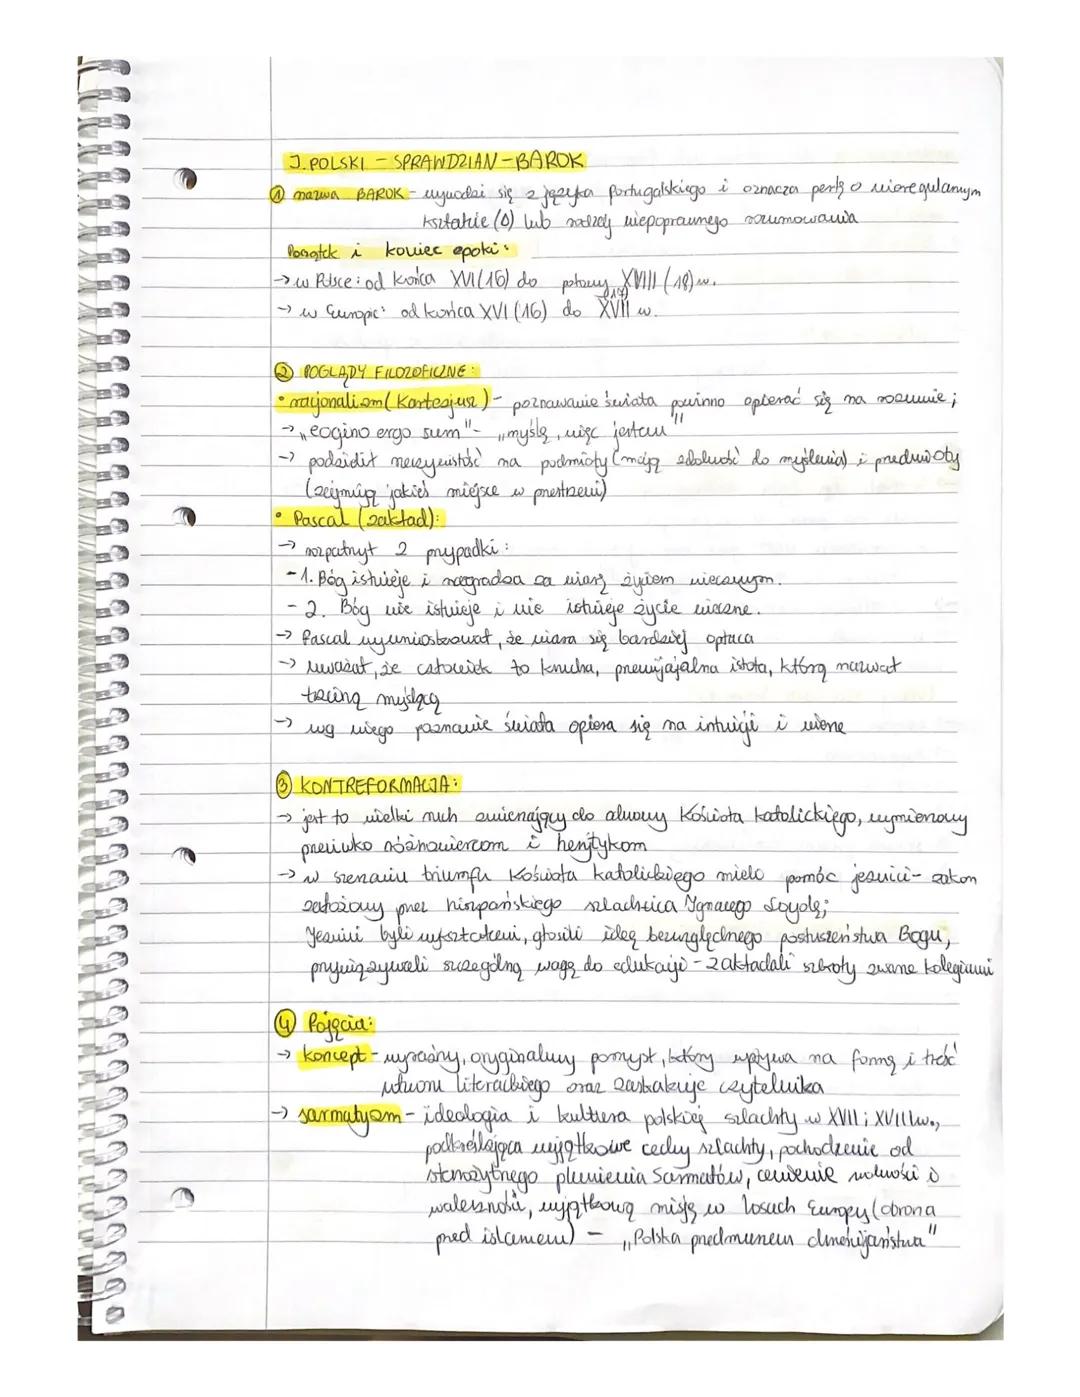 J. POLSKI - SPRAWDZIAN - BAROK
① nazwa BAROK - wywodzi się z języka portugalskiego i oznacza perłę o nieregularnym
kształcie (0) lub rodzaj niepoprawnego rozumowania
Początek i koniec epoki:
→ w Polsce: od końca XVI (16) do połowy XVIII (18) w.
→ w Europie: od końca XVI (16) do XVII (17) w.
② POGLĄDY FILOZOFICZNE:
• racjonalizm (Kartezjusz) - poznawanie świata powinno opierać się na rozumie;
→ „cogino ergo sum" - „myślę, więc jestem"
→ podzielił rzeczywistość na podmioty (mają zdolność do myślenia) i przedmioty
(zajmują jakieś miejsce w przestrzeni)
• Pascal (zakład):
→ rozpatrzył 2 przypadki:
- 1. Bóg istnieje i nagradza za wiarę życiem wiecznym.
- 2. Bóg nie istnieje i nie istnieje życie wieczne.
→ Pascal wywnioskował, że wiara się bardziej opłaca
→ uważał, że człowiek to krucha, przemijajalna istota, którą nazwał
trzciną myślącą
→ wg niego poznanie świata opiera się na intuicji i wierze
③ KONTREFORMACJA:
→ jest to wielki ruch zmierzający do odnowy Kościoła katolickiego, wymierzony
przeciwko różnowiercom i herytykom
→ w szerzeniu triumfu Kościoła katolickiego mieli pomóc jezuici - zakon
założony przez hiszpańskiego szlachcica Ignacego Loyolę;
Jezuici byli wykształceni, głosili ideę bezwzględnego posłuszeństwa Bogu,
przywiązywali szczególną wagę do edukacji - zakładali szkoły zwane kolegiami
④ Pojęcia:
→ koncept - wyraźny, oryginalny pomysł, który wpływa na formę i treść
utworu literackiego oraz zaskakuje czytelnika
→ sarmatyzm - ideologia i kultura polskiej szlachty w XVII i XVIII w.,
podkreślająca wyjątkowe cechy szlachty, pochodzenie od
starożytnego plemienia Sarmatów, cenienie wolności i
waleczności, wyjątkową misję w losach Europy (obrona
przed islamem) - „Polska przedmurzem chrześcijaństwa"